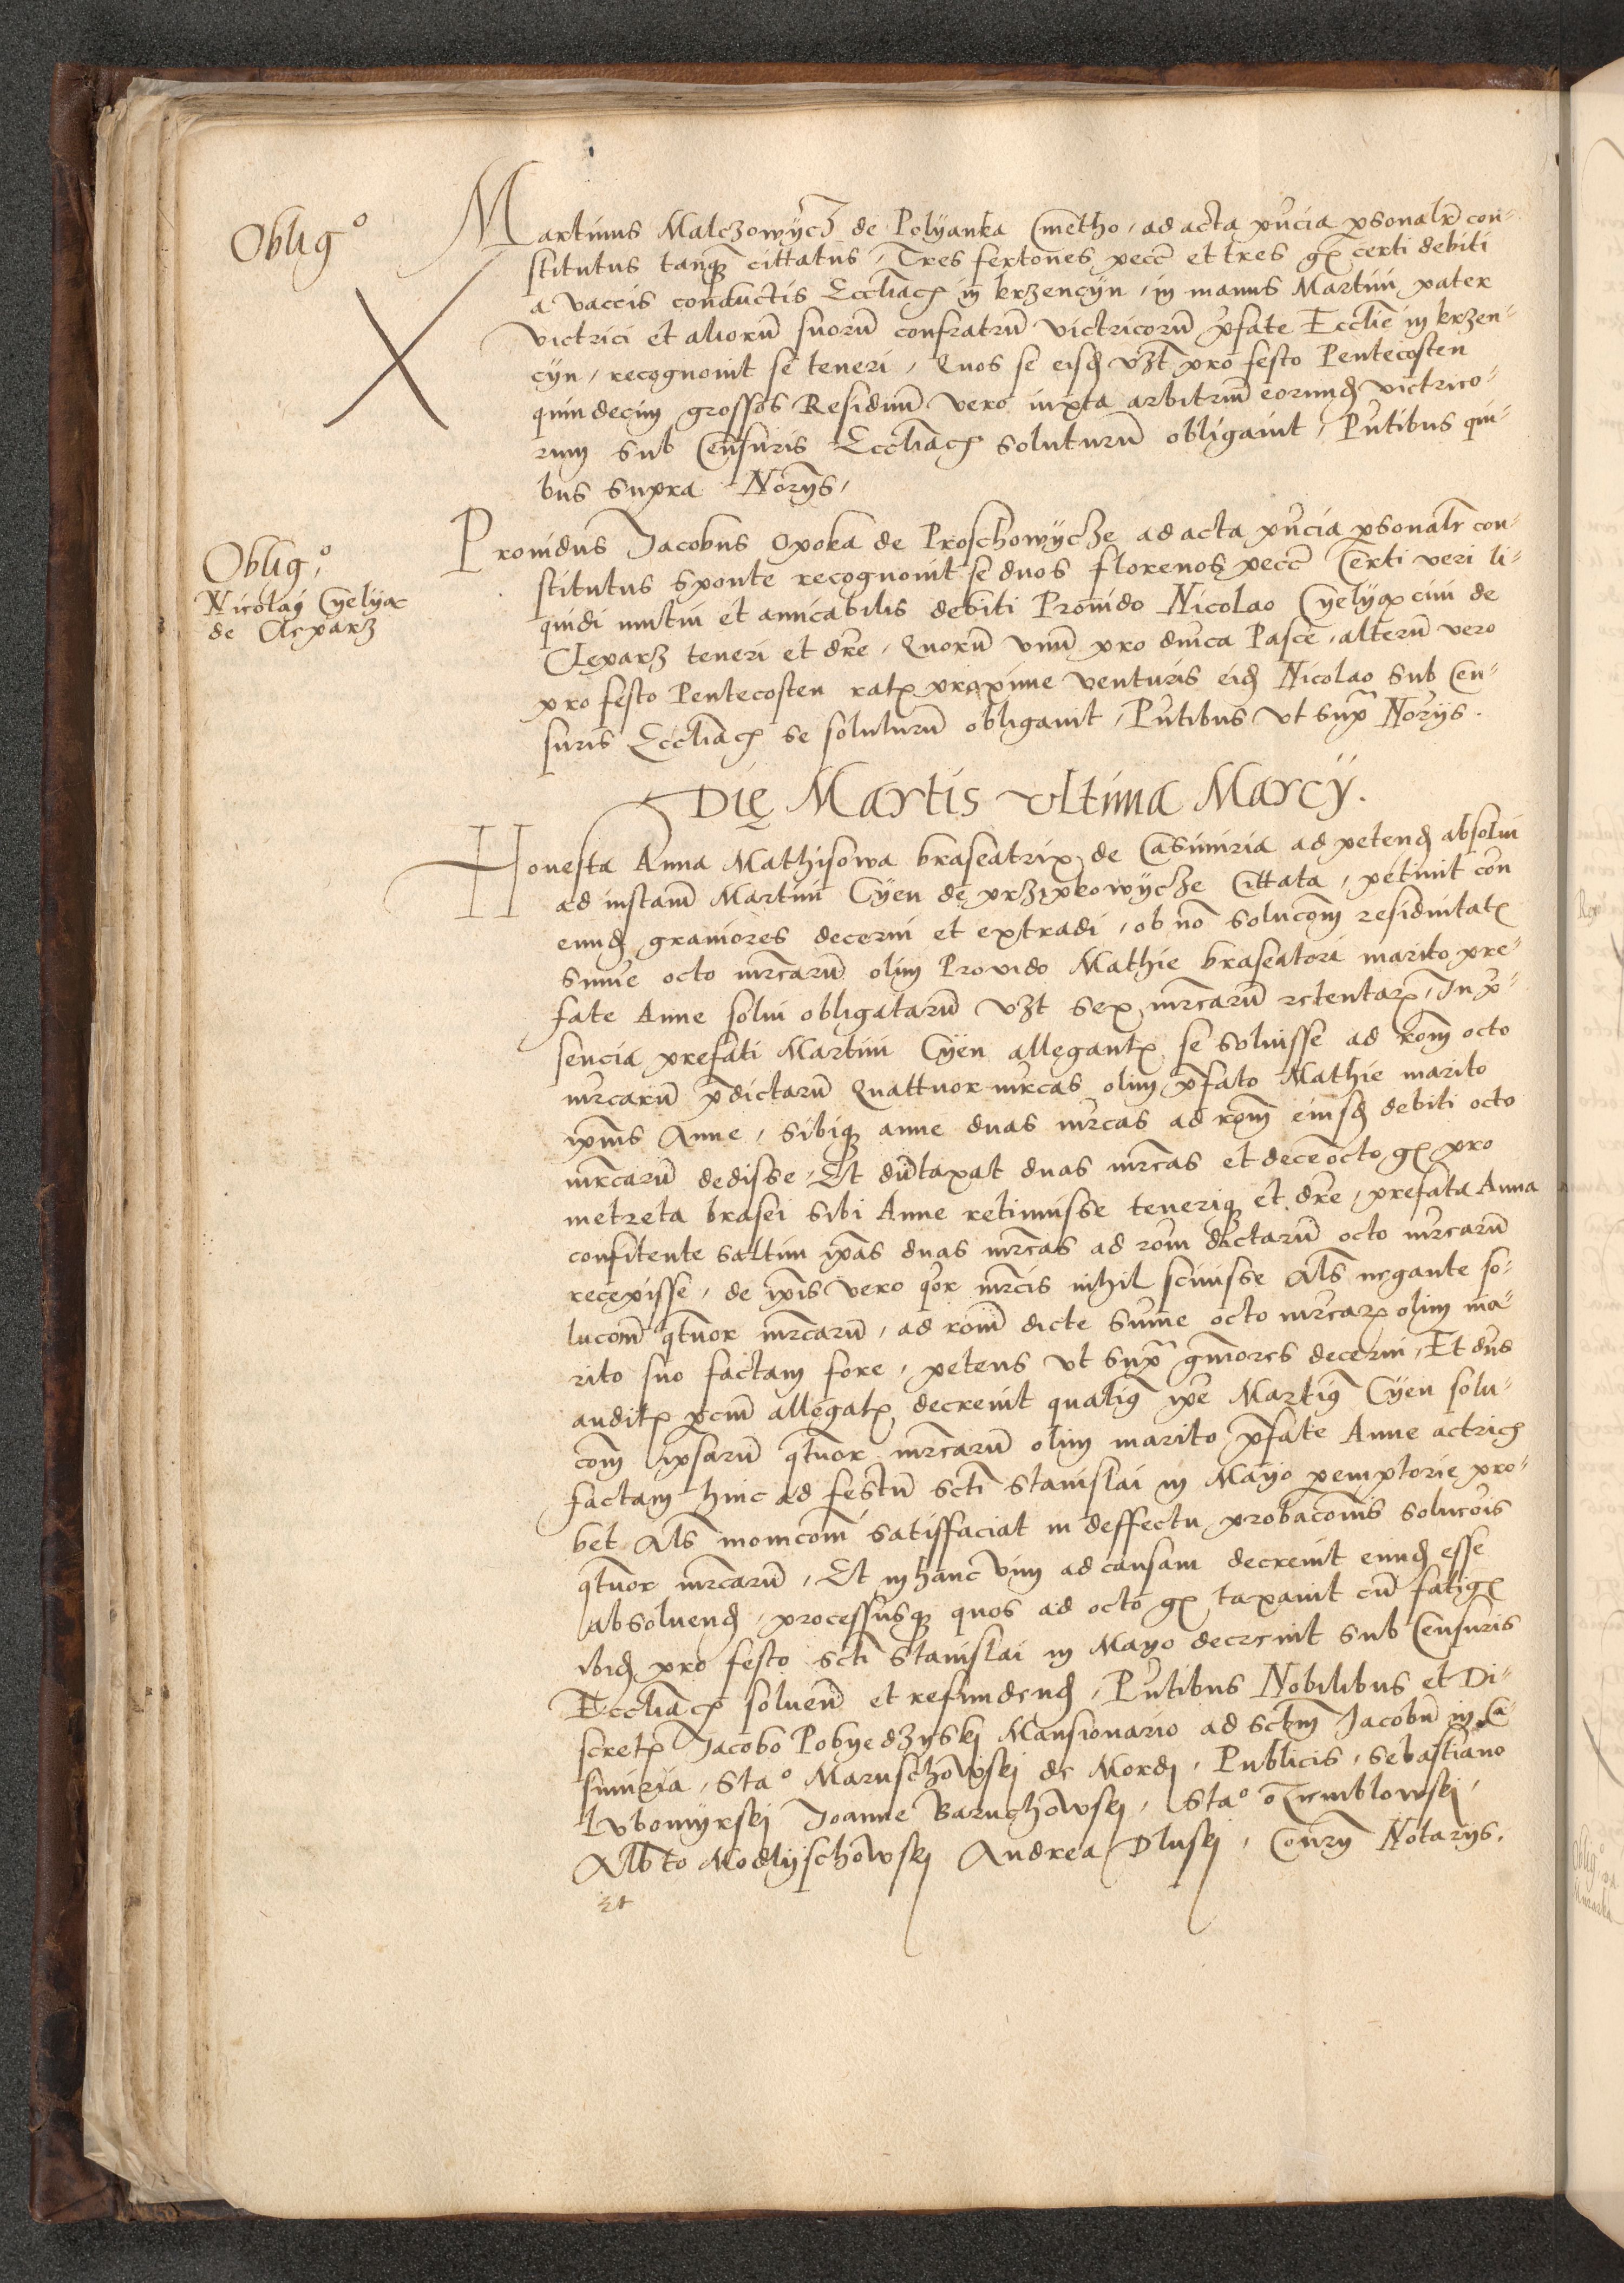 Oblig°
Martinus Malczowycz de Polyanka Cmetho, ad acta pñcia psonalr con-
stitutus tanq; cittatus, Tres fertones pecc et tres gr certi debiti
a vaccis conductis Ecclīac; in krzencyn, in manus Martini pater
victrici et aliorū suorū confratrū victricorū pfate Ecclīe in krzen-
cyn, recognovit se teneri, Quos se eisd vzt pro festo Pentecosten
quindecim grossos Residuū vero iuxta arbitriū eorund victrico-
rum sub Censuris Ecclīac; soluturū obligavit, Pñtibus qui-
bus supra Norijs,
Oblig°
Nicolai Cyelyac
de Cleparz
Providus Jacobus Opoka de Proschowycze ad acta pñcia psonalr con-
stitutus sponte recognovit se duos florenos pecc Certi veri li-
quidi mutui et amicabilis debiti Provido Nicolao Cyelyax civi de
Cleparz teneri et dre, Quorū vnū pro dnica Pasce, alterū vero
pro festo Pentecosten rat; proxime venturis eid Nicolao sub Cen-
suris Ecclīac; se soluturū obligavit, Pñtibus vt supᵃ Norijs.
Die Martis vltima Marcy.
Honesta Anna Mathisowa braseatrix de Casimiria ad petend absolui
ad instam Martini Cyen de przypkowycze Cittata, petivit con
eund graviores decerni et extradi, ob nō solucom residuitat;
sume octo mrcarū olim Provido Mathie braseatori marito pre-
fate Anne solui obligatarū vzt sex mrcarū retentar;, In p-
sencia prefati Martini Cyen allegant; se soluisse ad rom octo
mrcarū pdictarū Quattuor mrcas olim pfato Mathie marito
ipius Anne, sibiq; anne duas mrcas ad rom eiusd debiti octo
mrcarū dedisse, Et dūtaxat duas mrcas et decēocto gr pro
metreta brasei sibi Anne retinuisse teneriq; et dre, prefata Anna
confitente saltim ipas duas mrcas ad rom dictarū octo mrcarū
recepisse, de ipis vero qor mrcis nihil scivisse Als negante so-
lucom qtuor mrcarū, ad rom dicte sume octo mrcar; olim ma-
rito suo factam fore, petens vt supᵃ gviores decerni, Et dns
audit; pciū allegat; decrevit quati9 ipe Marti9 Cyen solu-
com ipsarū qtuor mrcarū olim marito pfate Anne actric;
factam hinc ad festū scti Stanislai in Mayo pemptorie pro-
bet Als monicom satisfaciat in deffectu probacionis solucōis
qtuor mrcarū, Et in hanc vim ad causam decrevit eund esse
absoluend, processusq; quos ad octo gr taxavit cū fatig;
ibid pro festo scti Stanislai in Mayo decrevit sub Censuris
Ecclīac; soluend et refundend, Pñtibus Nobilibus et Di-
scret; Jacobo Pobyedzyskj Mansionario ad sctm Jacobū in Ca-
simiria, Sta° Maruschowskj de Mordj, Publicis, Sebastiano
Lvbomyrskj Joanne Baruchowskj, Sta°
Albto Modlyschowskj Andrea Dluskj, Notarys.
Et